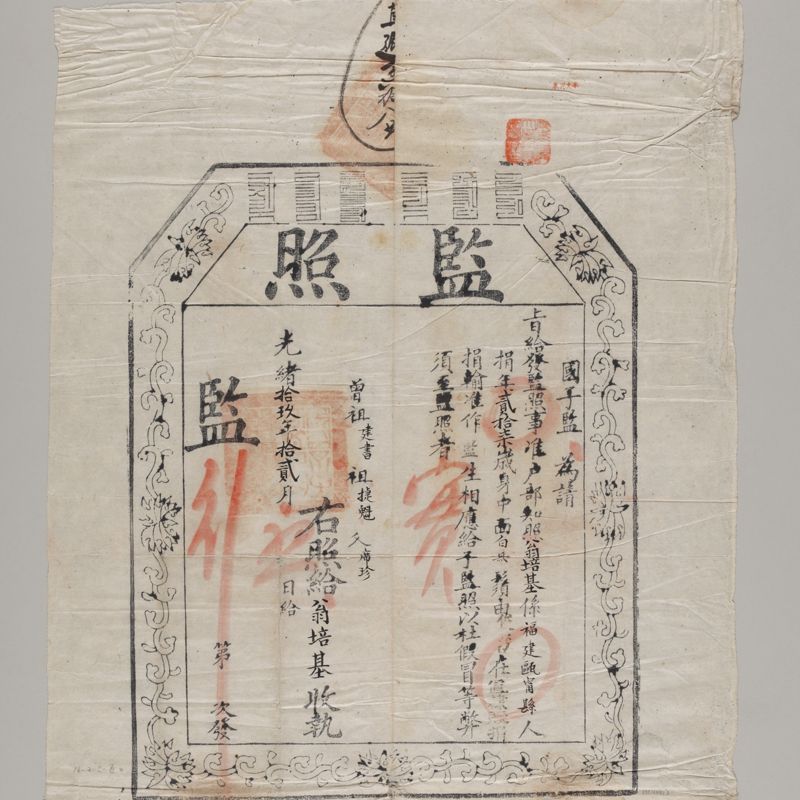 監照
國子監 為請
旨給發監照事准户部知照翁培基係福建甌甯縣人
捐年貳拾柒歲身中面白無鬚
捐輸准作監生相應給予監照以杜假冒等弊
須至監照者
曾祖建書 祖捷魁 父席珍
右照給翁培基收執
光緒拾玖年拾貳月 日給
監
第 次發